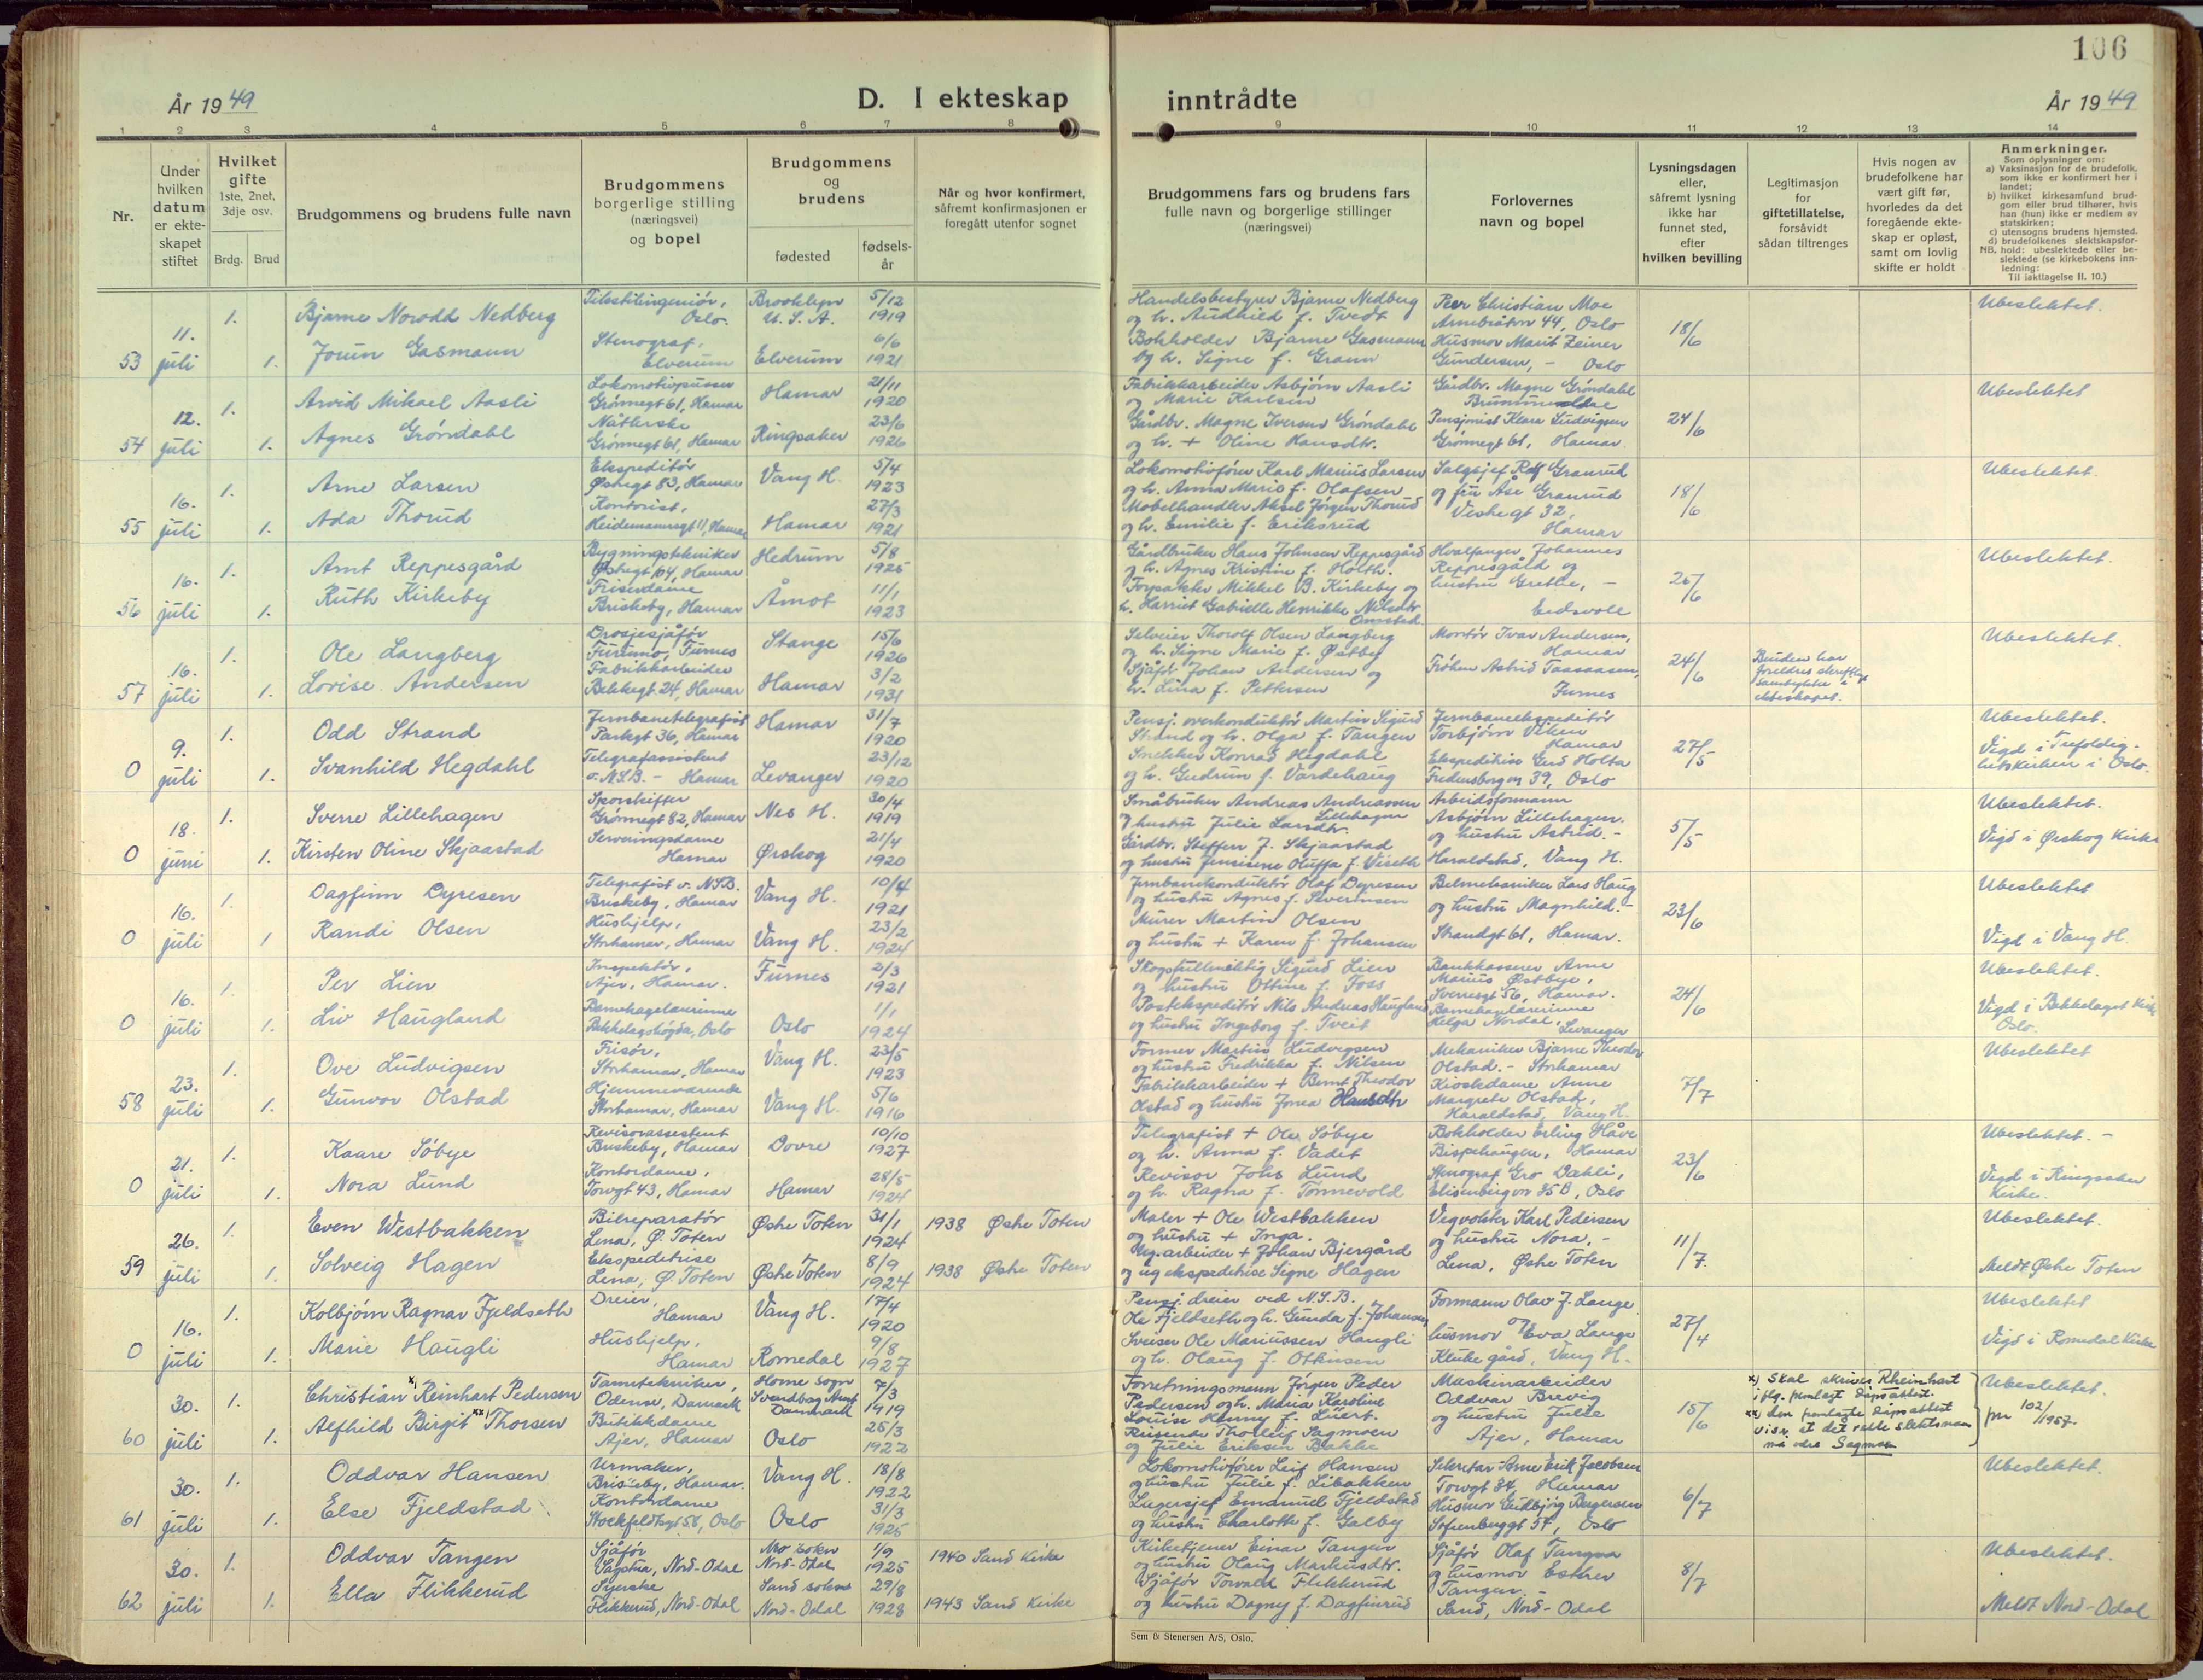 106
År 1949
D. I ekteskap
inntrådte
År 1949
1 2 3 4 5 6 7 8
9 10 11 12 13 14
Nr.
Under
hvilken
datum
er ekte-
skapet
stiftet
Hvilket
gifte
1ste, 2net,
3dje osv.
Brdg. Brud
Brudgommens og brudens fulle navn
Brudgommens
borgerlige stilling
(næringsvei)
og bopel
Brudgommens
og
brudens
fødested
fødsels-
år
Når og hvor konfirmert,
såfremt konfirmasjonen er
foregått utenfor sognet
Brudgommens fars og brudens fars
fulle navn og borgerlige stillinger
(næringsvei)
Forlovernes
navn og bopel
Lysningsdagen
eller,
såfremt lysning
ikke har
funnet sted,
efter
hvilken bevilling
Legitimasjon
for
giftetillatelse,
forsåvidt
sådan tiltrenges
Hvis nogen av
brudefolkene har
vært gift før,
hvorledes da det
foregående ekte-
skap er opløst,
samt om lovlig
skifte er holdt
Anmerkninger.
Som oplysninger om:
a) Vaksinasjon for de brudefolk,
som ikke er konfirmert her i
landet;
b) hvilket kirkesamfund brud-
gom eller brud tilhører, hvis
han (hun) ikke er medlem av
statskirken;
c) utensogns brudens hjemsted.
d) brudefolkenes slektskapsfor-
NB. hold: ubeslektede eller be-
slektede (se kirkebokens inn-
ledning:
Til iakttagelse II. 10.)
53 11. juli 1. 1.
Bjarne Norodd Nedberg
Jorun Gasmann
Tekstilingeniør, Oslo.
Stenograf, Elverum
Brooklyn U. S. A. 5/12 1919
Elverum 6/6 1921
Handelsbestyrer Bjarne Nedberg
og h. Audhild f. Tvedt
Bokholder Bjarne Gasmann
og h. Signe f. Graun
Peer Christian Moe
Arnebråtvn 44, Oslo
Husmor Marit Zeiner
Gundersen, - Oslo
18/6
Ubeslektet.
54 12. juli 1. 1.
Arvid Mikael Aasli
Agnes Grøndahl
Lokomotivpusser
Grønnegt 61, Hamar
Nåtlerske
Grønnegt 61, Hamar
Hamar 21/11 1920
Ringsaker 23/6 1926
Fabrikkarbeider Asbjørn Aasli
og Marie Karlsen
Gårdbr. Magne Iversen Grøndahl
og h. + Oline Hansdtr.
Gårdbr. Magne Grøndahl
Brummundal
Pensjonist Klara Ludvigsen
Grønnegt 61, Hamar.
24/6
Ubeslektet
55 16. juli 1. 1.
Arne Larsen
Ada Thorud
Ekspeditør
Østregt 83, Hamar
Kontorist,
Heidemannsgt 11, Hamar
Vang H. 5/4 1923
Hamar 27/3 1921
Lokomotivfører Karl Marius Larsen
og h. Anna Marie f. Olafsen
Møbelhandler Aksel Jørgen Thorud
og h. Emilie f. Eriksrud
Salgsjef Rolf Granrud
og fru Åse Granrud
Vestregt 32,
Hamar
18/6
Ubeslektet.
56 16. juli 1. 1.
Arnt Reppesgård
Ruth Kirkeby
Bygningstekniker
Østregt 104, Hamar
Friserdame
Briskeby, Hamar
Hedrum 5/8 1925
Åmot 11/1 1923
Gårdbruker Hans Johnsen Reppesgård
og h. Agnes Kristine f. Holth.
Forpakter Mikkel B. Kirkeby og
h. Harriet Gabrielle Henrikke Nilsdtr
Omstad
Hvalfanger Johannes
Reppesgård og
hustru Grethe, -
Eidsvoll
25/6
Ubeslektet.
57 16. juli 1. 1.
Ole Langberg
Lovise. Andersen
Drosjesjåfør
Furumo, Furnes
Fabrikkarbeider
Bekkegt 24, Hamar
Stange 15/6 1926
Hamar 3/2 1931
Selveier Thorolf Olsen Langberg
og h. Signe Marie f. Østby
Sjåfør Johan Andersen og
h. Lina f. Pettersen
Montør Ivar Andersen,
Hamar
Frøken Astrid Taasaasen,
Furnes
24/6
Bruden har
foreldres skriftlige
samtykke i
ekteskapet.
Ubeslektet.
0 9. juli 1. 1.
Odd Strand
Svanhild Hegdahl
Jernbanetelegrafist
Parkgt 36, Hamar
Telegrafassistent
v. N.S.B. - Hamar
Hamar 31/7 1920
Levanger 23/12 1920
Pensj. overkonduktør Martin Sigurd
Strand og h. Olga f. Tangen
Snekker Konrad Hegdahl
og h. Gudrun f. Vardehaug
Jernbaneekspeditør
Torbjørn Viken
Hamar
Ekspeditrise Gerd Holta
Fredensborgvn 39, Oslo
27/5
Ubeslektet.
Vigd i Trefoldig-
hetskirken i Oslo.
0 18. juni 1. 1.
Sverre Lillehagen
Kirsten Oline Skjaastad
Sporskifter
Grønnegt 82, Hamar
Serveringsdame
Hamar
Nes H. 30/4 1919
Ørskog 21/4 1920
Småbruker Andreas Andreassen
Lillehagen
og hustru Julie Larsdtr.
Gårdbr. Steffen J. Skjaastad
og hustru Jensine Oluffa f. Viseth
Arbeidsformann
Asbjørn Lillehagen.
og hustru Astrid. -
Haraldstad, Vang H.
5/5
Ubeslektet.
Vigd i Ørskog Kirke
0 16. juli 1. 1
Dagfinn Dyresen
Randi Olsen
Telegrafist v. N.S.B.
Briskeby, Hamar
Hushjelp,
Storhamar, Hamar
Vang H. 10/4 1921
Vang H. 23/2 1924
Jernbanekonduktør Olaf Dyresen
og hustru Agnes f. Severinsen
Murer Martin Olsen
og hustru + Karen f. Johansen
Bilmekaniker Lars Haug
og hustru Magnhild. -
Strandgt 61, Hamar.
23/6
Ubeslektet
Vigd i Vang H.
0 16. juli 1. 1.
Per Lien
Liv Haugland
Inspektør,
Ajer, Hamar.
Barnehagelærerinne
Bekkelagshøgda, Oslo
Furnes 2/3 1921
Oslo 1/1 1924
Skogfullmektig Sigurd Lien
og hustru Ottine f. Foss
Postekspeditør Nils Andreas Haugland
og hustru Ingeborg f. Tveit
Bankkasserer Arne
Marius Østbye,
Sverresgt 56, Hamar.
Barnehagelærerinne
Helga Nordal,
Levanger
24/6
Ubeslektet.
Vigd i Bekkelaget Kirke
Oslo.
58 23. juli 1. 1.
Ove Ludvigsen
Gunvor Olstad
Frisør,
Storhamar, Hamar
Hjemmeværende
Storhamar, Hamar
Vang H. 23/5 1923
Vang H. 5/6 1916
Former Martin Ludvigsen
og hustru Fredrikka f. Nilsen
Fabrikkarbeider + Bernt Theodor
Olstad og hustru Jonea Hansdtr
Mekaniker Bjarne Theodor
Olstad. - Storhamar
Kioskdame Anne
Margrete Olstad,
Haraldstad, Vang H.
7/7
Ubeslektet
0 21. juli 1. 1.
Kaare Søbye
Nora Lund
Revisorassistent
Briskeby, Hamar
Kontordame,
Torvgt 43, Hamar
Dovre 10/10 1927
Hamar 28/5 1924
Telegrafist + Ole Søbye
og h. Anna f. Vadet
Revisor Johs Lund
og h. Ragna f. Tønnevold
Bokholder Erling Håve
Bispehaugen, Hamar
Stenograf Gro Dahli,
Elisenbergvn 35 B, Oslo
23/6
Ubeslektet. -
Vigd i Ringsaker
Kirke.
59 26. juli 1. 1.
Even Westbakken
Solveig Hagen
Bilreparatør
Lena, Ø. Toten
Ekspeditrise
Lena, Ø. Toten
Østre Toten 31/1 1924
Østre Toten 8/9 1924
1938 Østre Toten
1938 Østre Toten
Maler + Ole Westbakken
og hustru + Inga.
Veg.arbeider + Johan Bjergård
og ug ekspeditrise Signe Hagen
Vegvokter Karl Pedersen
og hustru Nora, -
Lena, Østre Toten
11/7
Ubeslektet.
Meldt Østre Toten
0 16. juli 1. 1.
Kolbjørn Ragnar Fjeldseth
Marie Haugli
Dreier,
Hamar
Hushjelp,
Hamar
Vang H. 17/4 1920
Romedal 9/8 1927
Pensj. dreier ved N.S.B.
Ole Fjeldseth og h. Gunda f. Johansen
Sveiser Ole Mariussen Haugli
og h. Olaug f. Othinsen
Formann Olav J. Lange
og
husmor Eva Lange
Kluke gård, Vang H.
27/4
Ubeslektet
Vigd i Romedal Kirke
60 30. juli 1. 1.
Christian x) Reinhart Pedersen
Alfhild Birgit xx) Thorsen
Tanntekniker,
Odense, Danmark
Butikkdame
Ajer, Hamar
Horne sogn
Svendborg Amt
Danmark 7/3 1919
Oslo 25/3 1922
Forretningsmann Jørgen Peder
Pedersen og h. Maria Karoline
Louise Henny f. Luert.
Reisende Thorleif Sagmoen
og Julie Eriksen Bakke
Maskinarbeider
Oddvar Brevig
og hustru Julie
Ajer, Hamar
15/6
x) Skal skrives Rheinhart
iflg. fremlagt dåpsattest.
xx) den fremlagte dåpsattest
viser at det rette slektsnavn
må være Sagmoen
Ubeslektet.
pnr 102/1957.
61 30. juli 1. 1.
Oddvar Hansen
Else Fjeldstad
Urmaker,
Briskeby, Hamar.
Kontordame
Stockfeldtsgt 56, Oslo
Vang H. 18/8 1922
Oslo 31/3 1925
Lokomotivfører Leif Hansen
og hustru Julie f. Libakken
Lagersjef Emanuel Fjeldstad
og hustru Charlotte f. Galby
Sekretær Arne Erik Jacobsen
Torvgt 84, Hamar
Husmor Gudbjørg Børgersen
Sofienberggt 57, Oslo
6/7
Ubeslektet.
62 30. juli 1. 1.
Oddvar Tangen
Ella Flikkerud
Sjåfør
Sagstua, Nord-Odal
Syerske
Flikkerud, Nord-Odal
Mo sokn
Nord-Odal 1/9 1925
Sand sokn
Nord-Odal 29/8 1928
1940 Sand Kirke
1943 Sand Kirke
Kirketjener Einar Tangen
og hustru Olaug Markusdtr.
Sjåfør Torvald Flikkerud
og hustru Dagny f. Dagfinrud
Sjåfør Olaf Tangen
og husmor Esther
Tangen. -
Sand, Nord-Odal
8/7
Ubeslektet.
Meldt Nord-Odal
Sem & Stenersen A/S, Oslo.